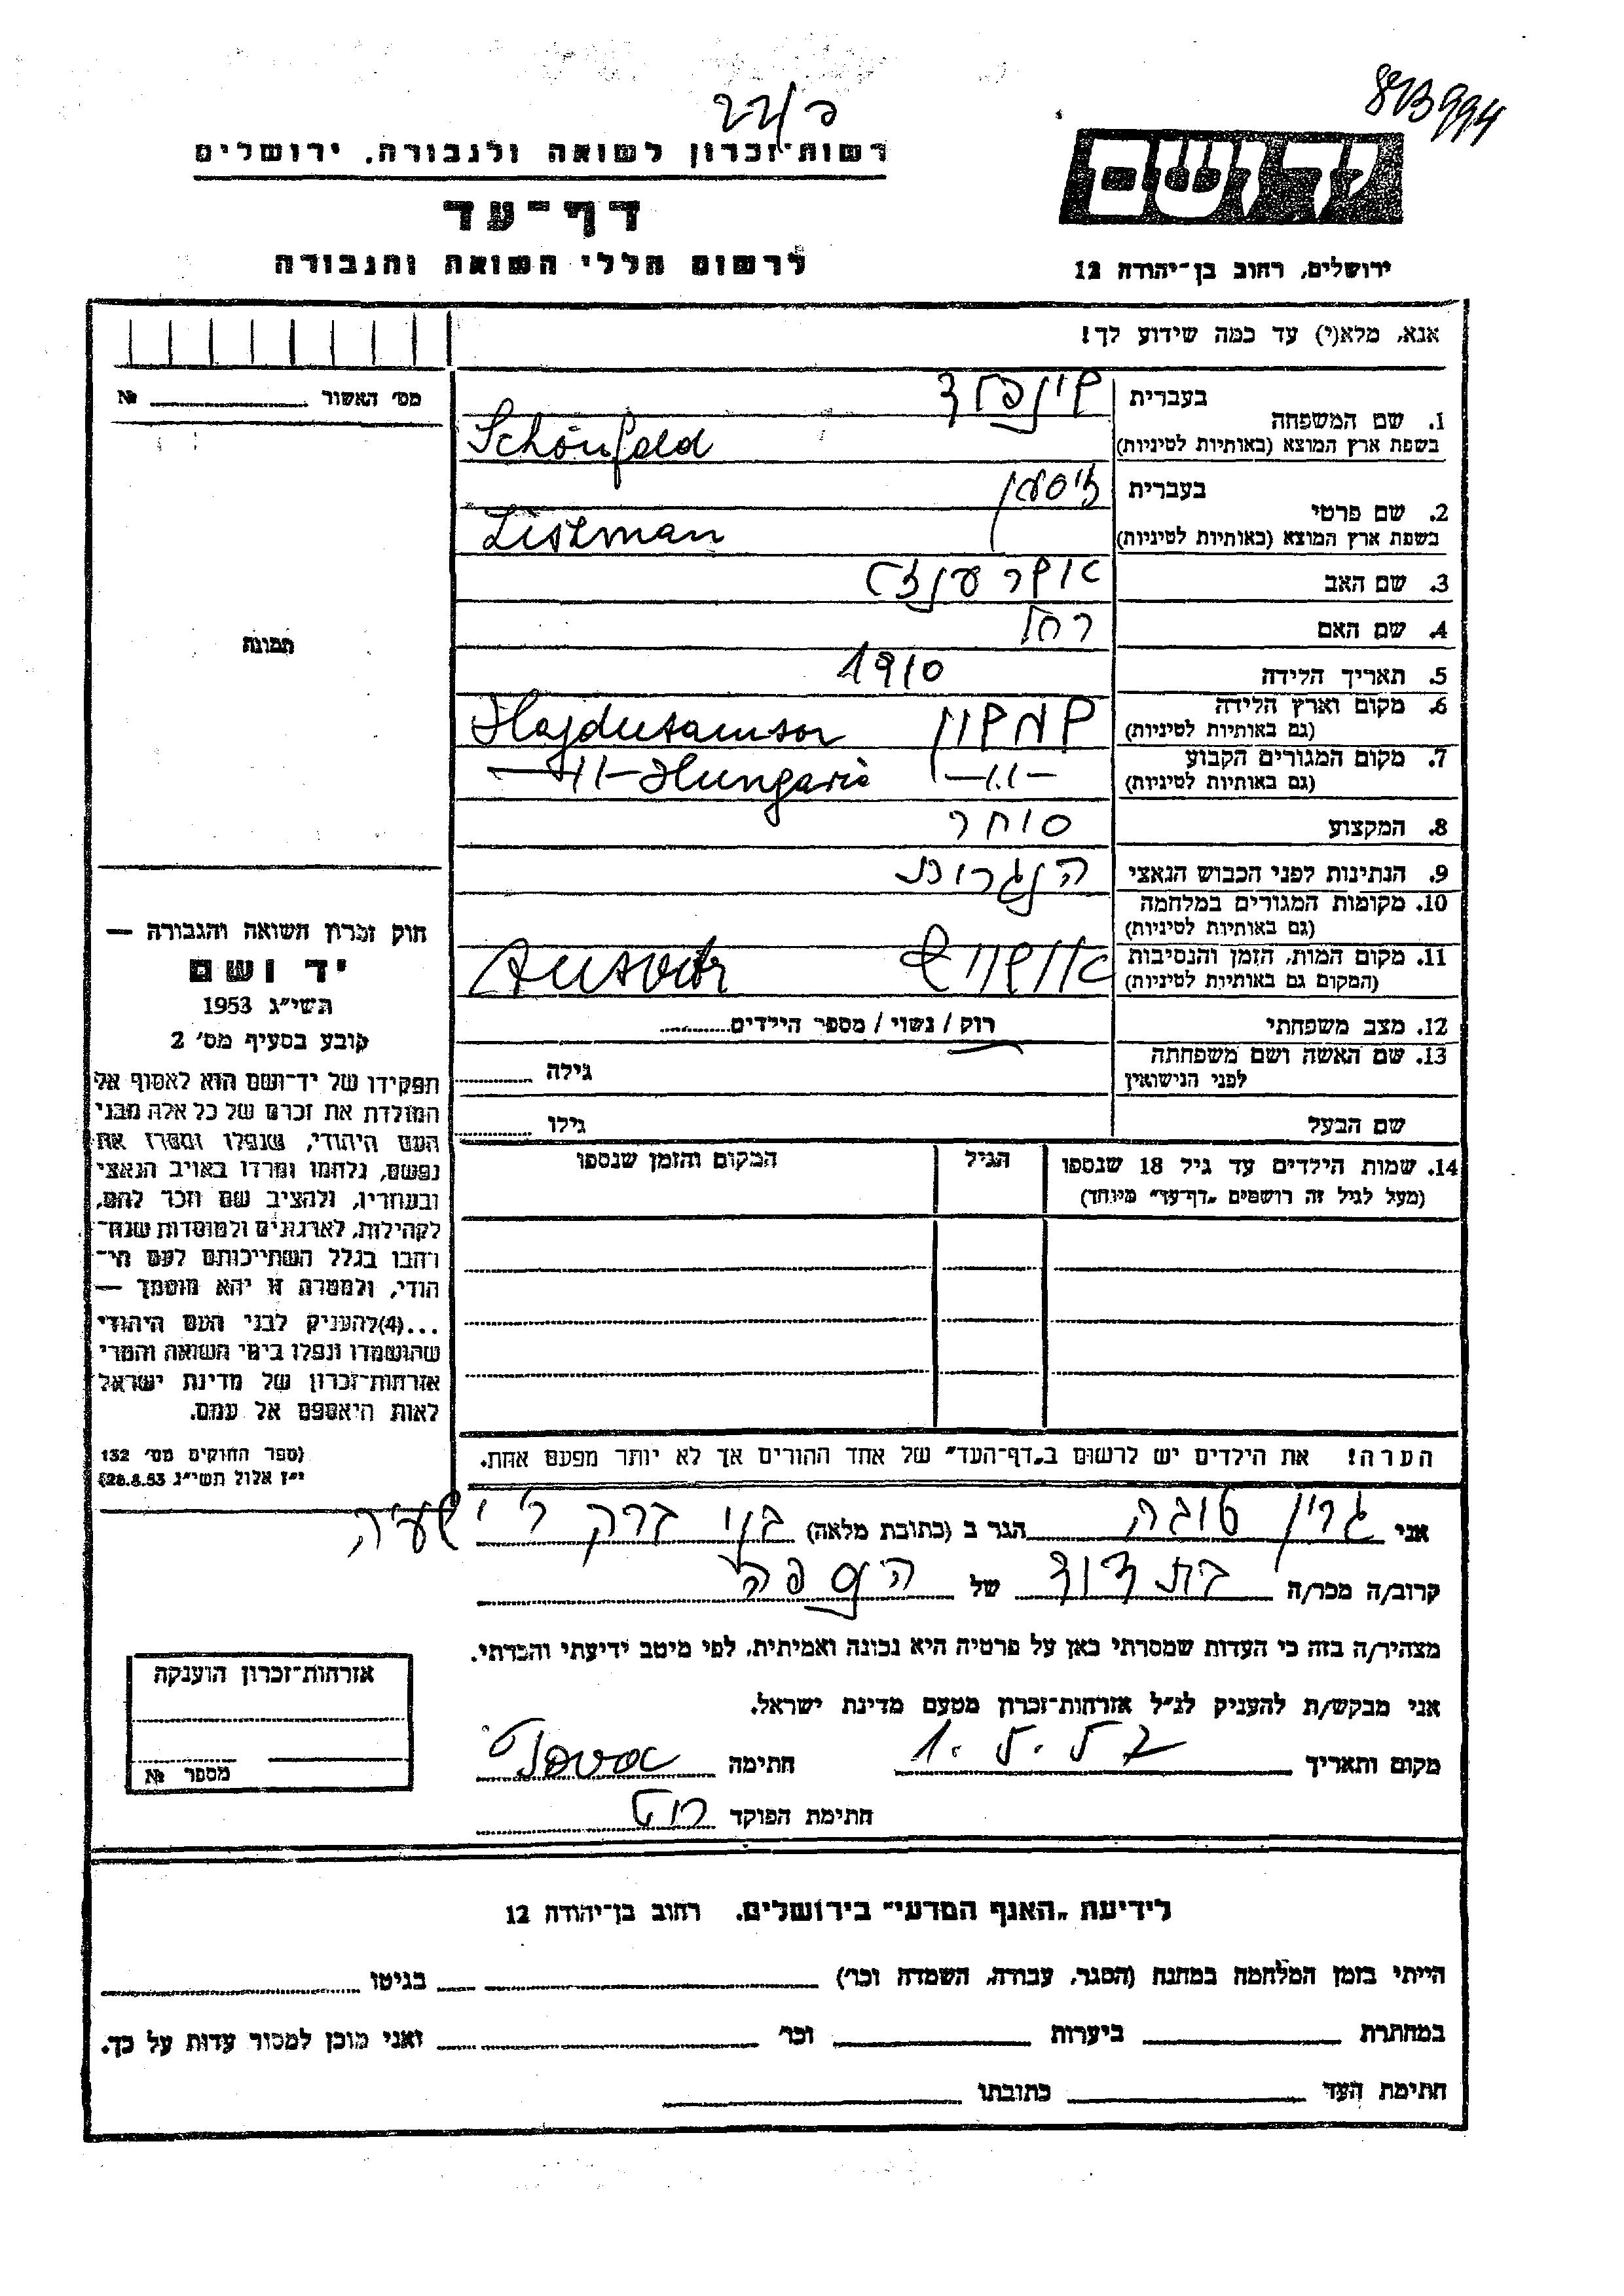 873994
כ/22
רשות־זכרון לשואה ולגבורה, ירושלים
דף־עד
לרשום חללי השואה והגבורה
יד ושם
ירושלים, רחוב בן־יהודה 12
אנא, מלא(י) עד כמה שידוע לך!
מס׳ האשור № 
בעברית שינפלד
1. שם המשפחה
בשפת ארץ המוצא (באותיות לטיניות) Schönfeld
בעברית ציסמן
2. שם פרטי
בשפת ארץ המוצא (באותיות לטיניות) Ziszman
3. שם האב אשר
4. שם האם רחל
5. תאריך הלידה 1910
6. מקום וארץ הלידה (גם באותיות לטיניות) שמשון Hajdusamson
7. מקום המגורים הקבוע (גם באותיות לטיניות) -11- -11- Hungaria
8. המקצוע סוחר
9. הנתינות לפני הכבוש הנאצי הנגרית
10. מקומות המגורים במלחמה (גם באותיות לטיניות)
11. מקום המות, הזמן והנסיבות (המקום גם באותיות לטיניות) אושויץ
12. מצב משפחתי רוק / נשוי / מספר הילדים
13. שם האשה ושם משפחתה לפני הנישואין גילה
שם הבעל גילו
14. שמות הילדים עד גיל 18 שנספו הגיל המקום והזמן שנספו
(מעל לגיל זה רושמים „דף־עד״ מיוחד)
הערה! את הילדים יש לרשום ב„דף־העד״ של אחד ההורים אך לא יותר מפעם אחת.
תמונה
חוק זכרון השואה והגבורה —
יד ושם
תשי״ג 1953
קובע בסעיף מס׳ 2
תפקידו של יד־ושם הוא לאסוף אל
המולדת את זכרם של כל אלה מבני
העם היהודי, שנפלו ומסרו את
נפשם, נלחמו ומרדו באויב הנאצי
ובעוזריו, ולהציב שם וזכר להם,
לקהילות, לארגונים ולמוסדות שנח־
רחבו בגלל השתייכותם לעם הי־
הודי, ולמטרה זו יהא מוסמך —
...(4)להעניק לבני העם היהודי
שהושמדו ונפלו בימי השואה והמרי
אזרחות־זכרון של מדינת ישראל
לאות היאספם אל עמם.
(ספר החוקים מס׳ 132
י״ז אלול תשי״ג 28.8.53)
אני גרין טובה הגר ב (כתובת מלאה) בני ברק ר׳ ישעיה
קרוב/ה מכר/ה בת דוד של הנספה
מצהיר/ה בזה כי העדות שמסרתי כאן על פרטיה היא נכונה ואמיתית, לפי מיטב ידיעתי והכרתי.
אני מבקש/ת להעניק לנ״ל אזרחות־זכרון מטעם מדינת ישראל.
מקום ותאריך 1. 5. 57 חתימה
חתימת הפוקד
אזרחות־זכרון הוענקה
מספר №
לידיעת „האגף המדעי״ בירושלים. רחוב בן־יהודה 12
הייתי בזמן המלחמה במחנה (הסגר, עבודה, השמדה וכו׳) בגיטו
במחתרת ביערות וכו׳ ואני מוכן למסור עדות על כך.
חתימת העד כתובתו